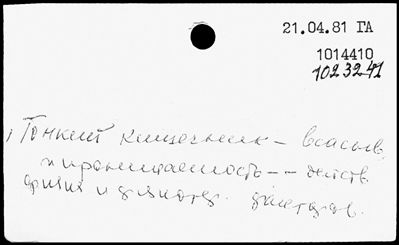 21.04.81 ГА
1014410
1023241
Тонкий кишечник – всасыв.
и проницаемость – – действ.
физич и